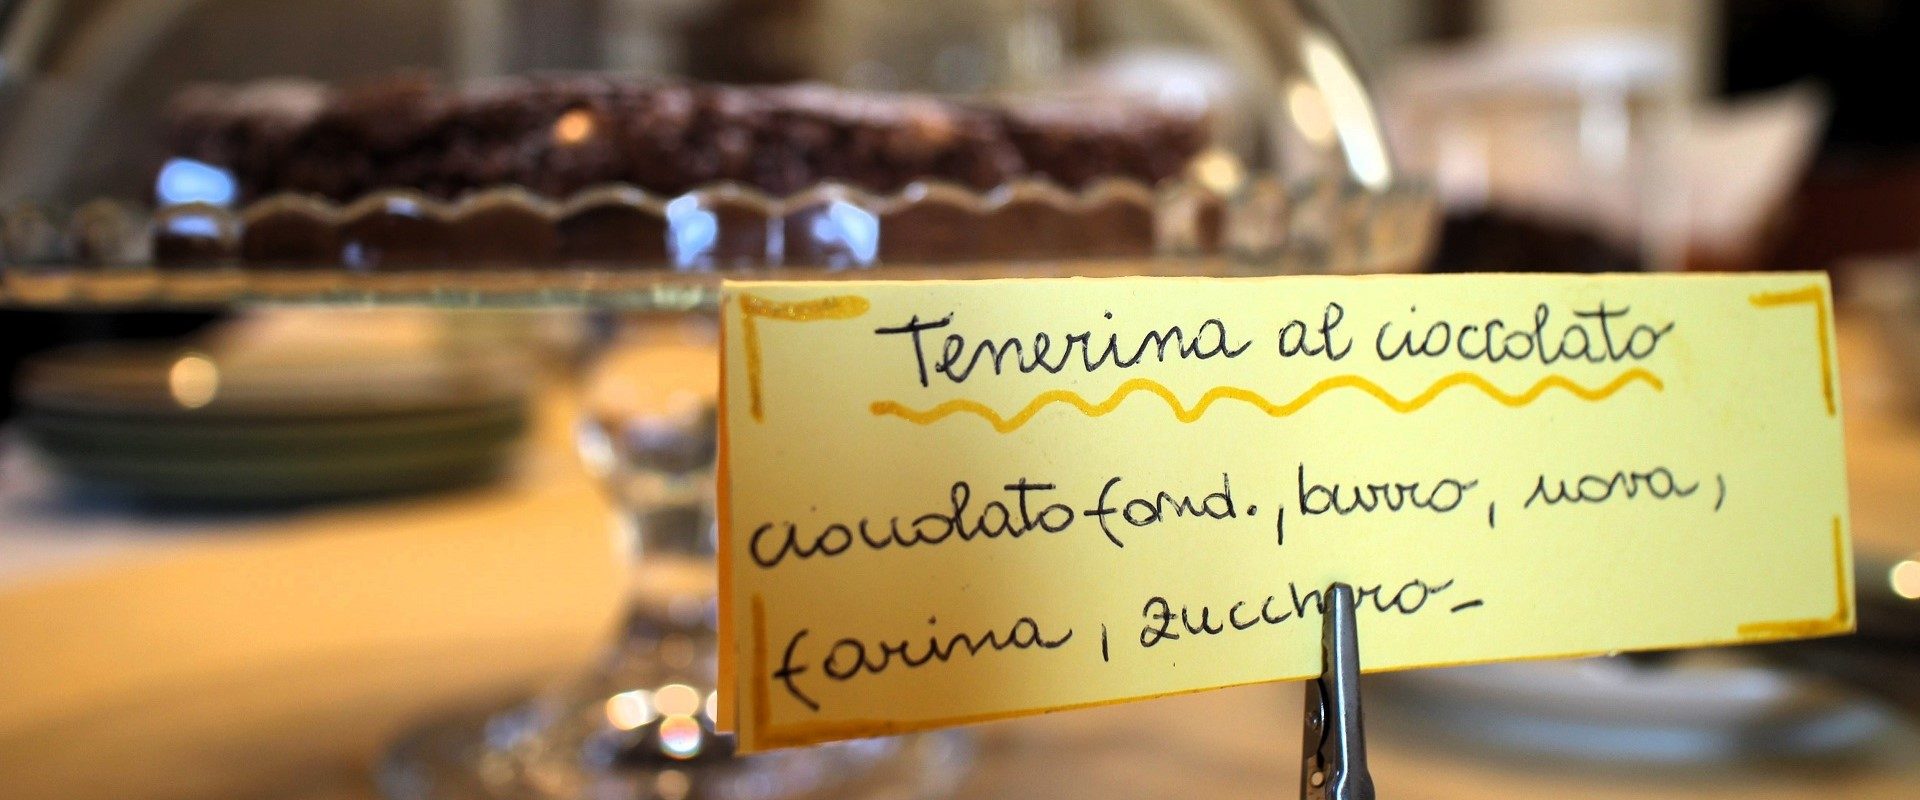 Tenerina al cioccolato
cioccolato fond., burro, uova,
farina, zucchero-